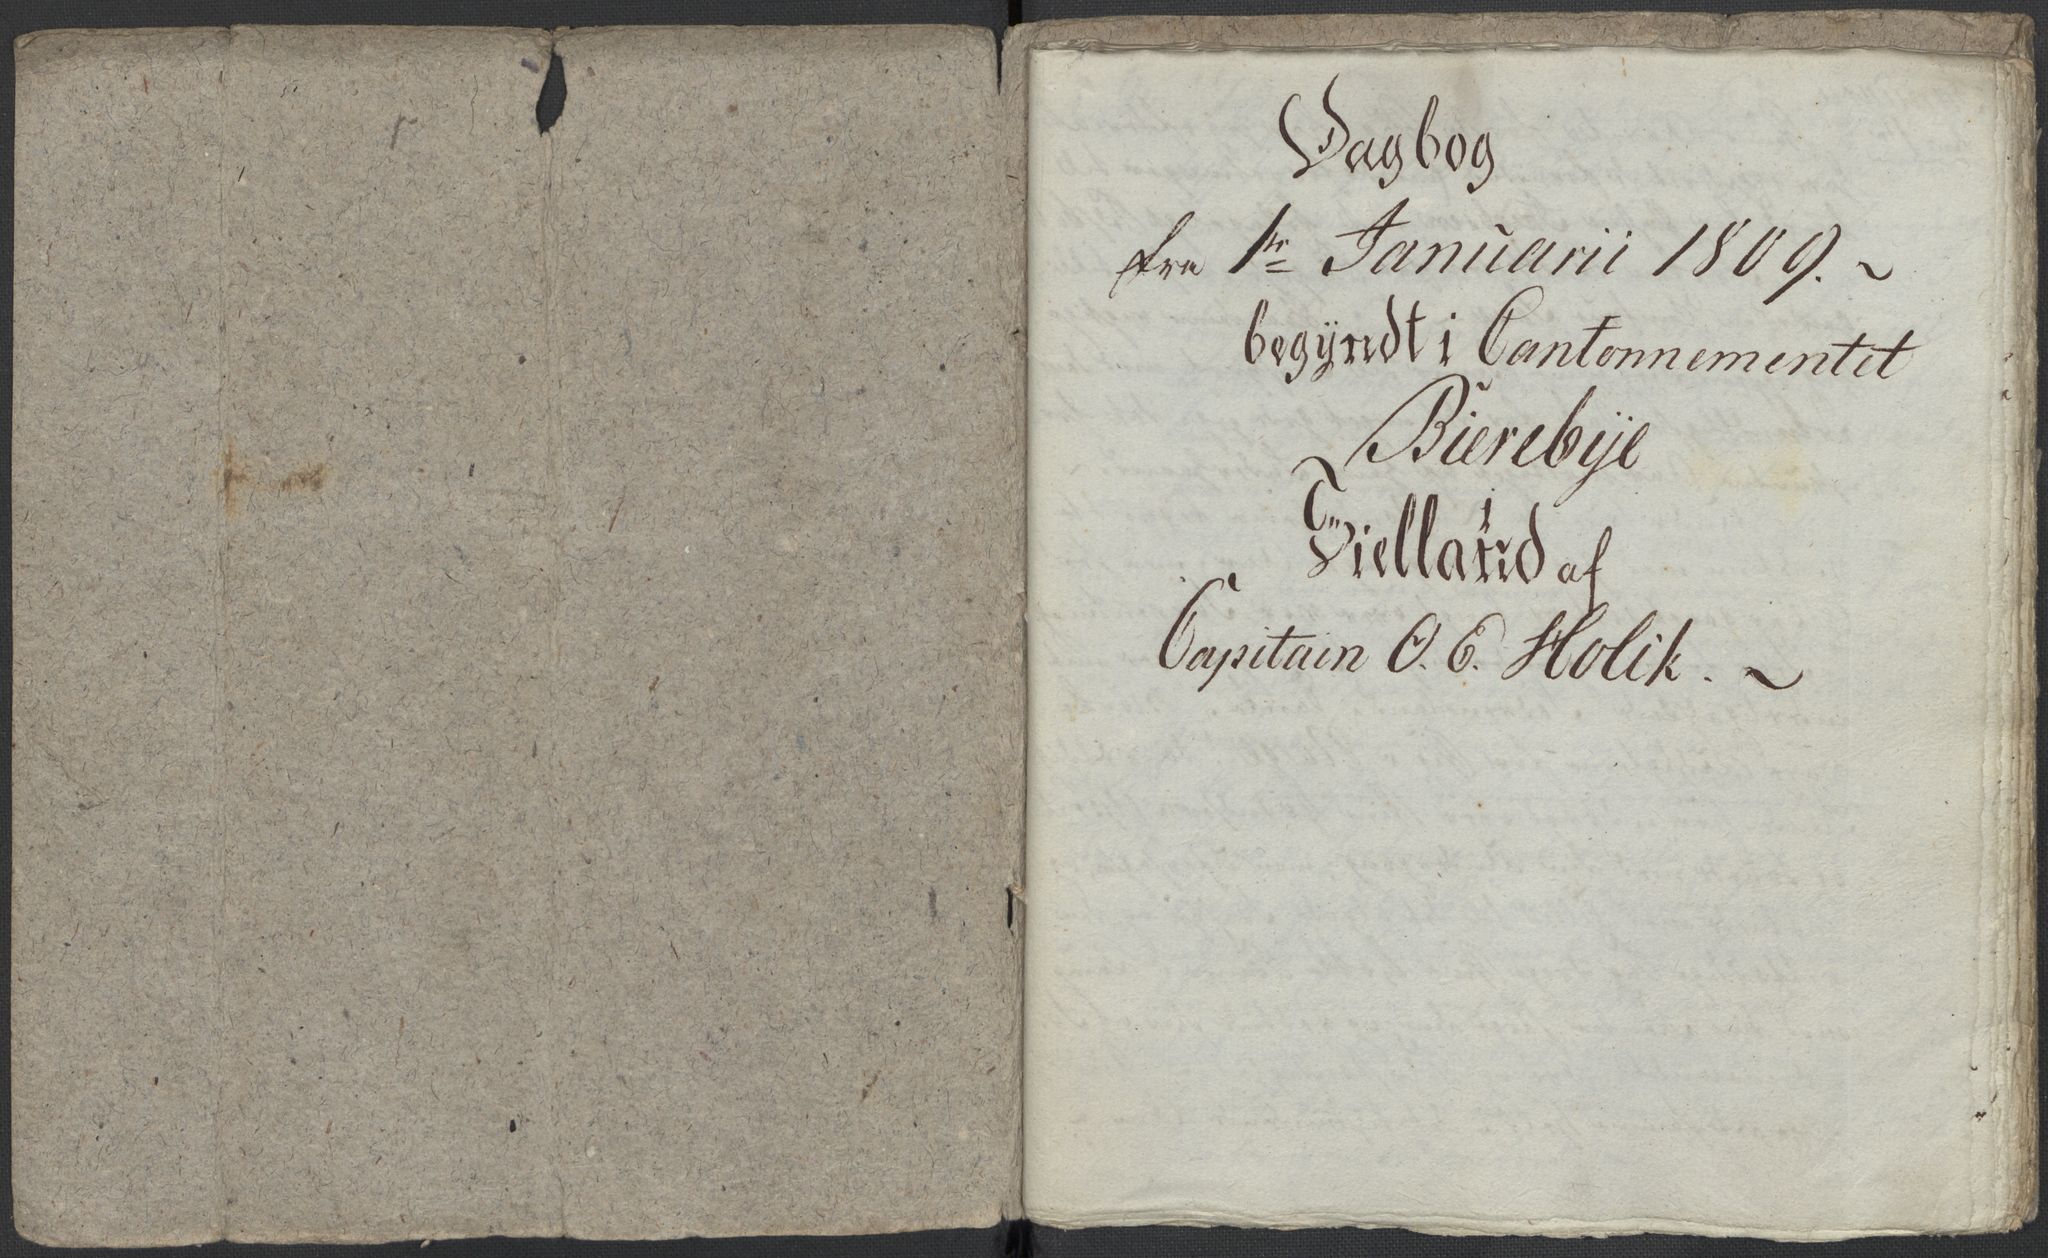 Dagbog
fra 1te Januarii 1809. ~
begÿndt i Cantonnementet
Bierebÿe
i
Sielland af
Capitain O. E. Holik. ~